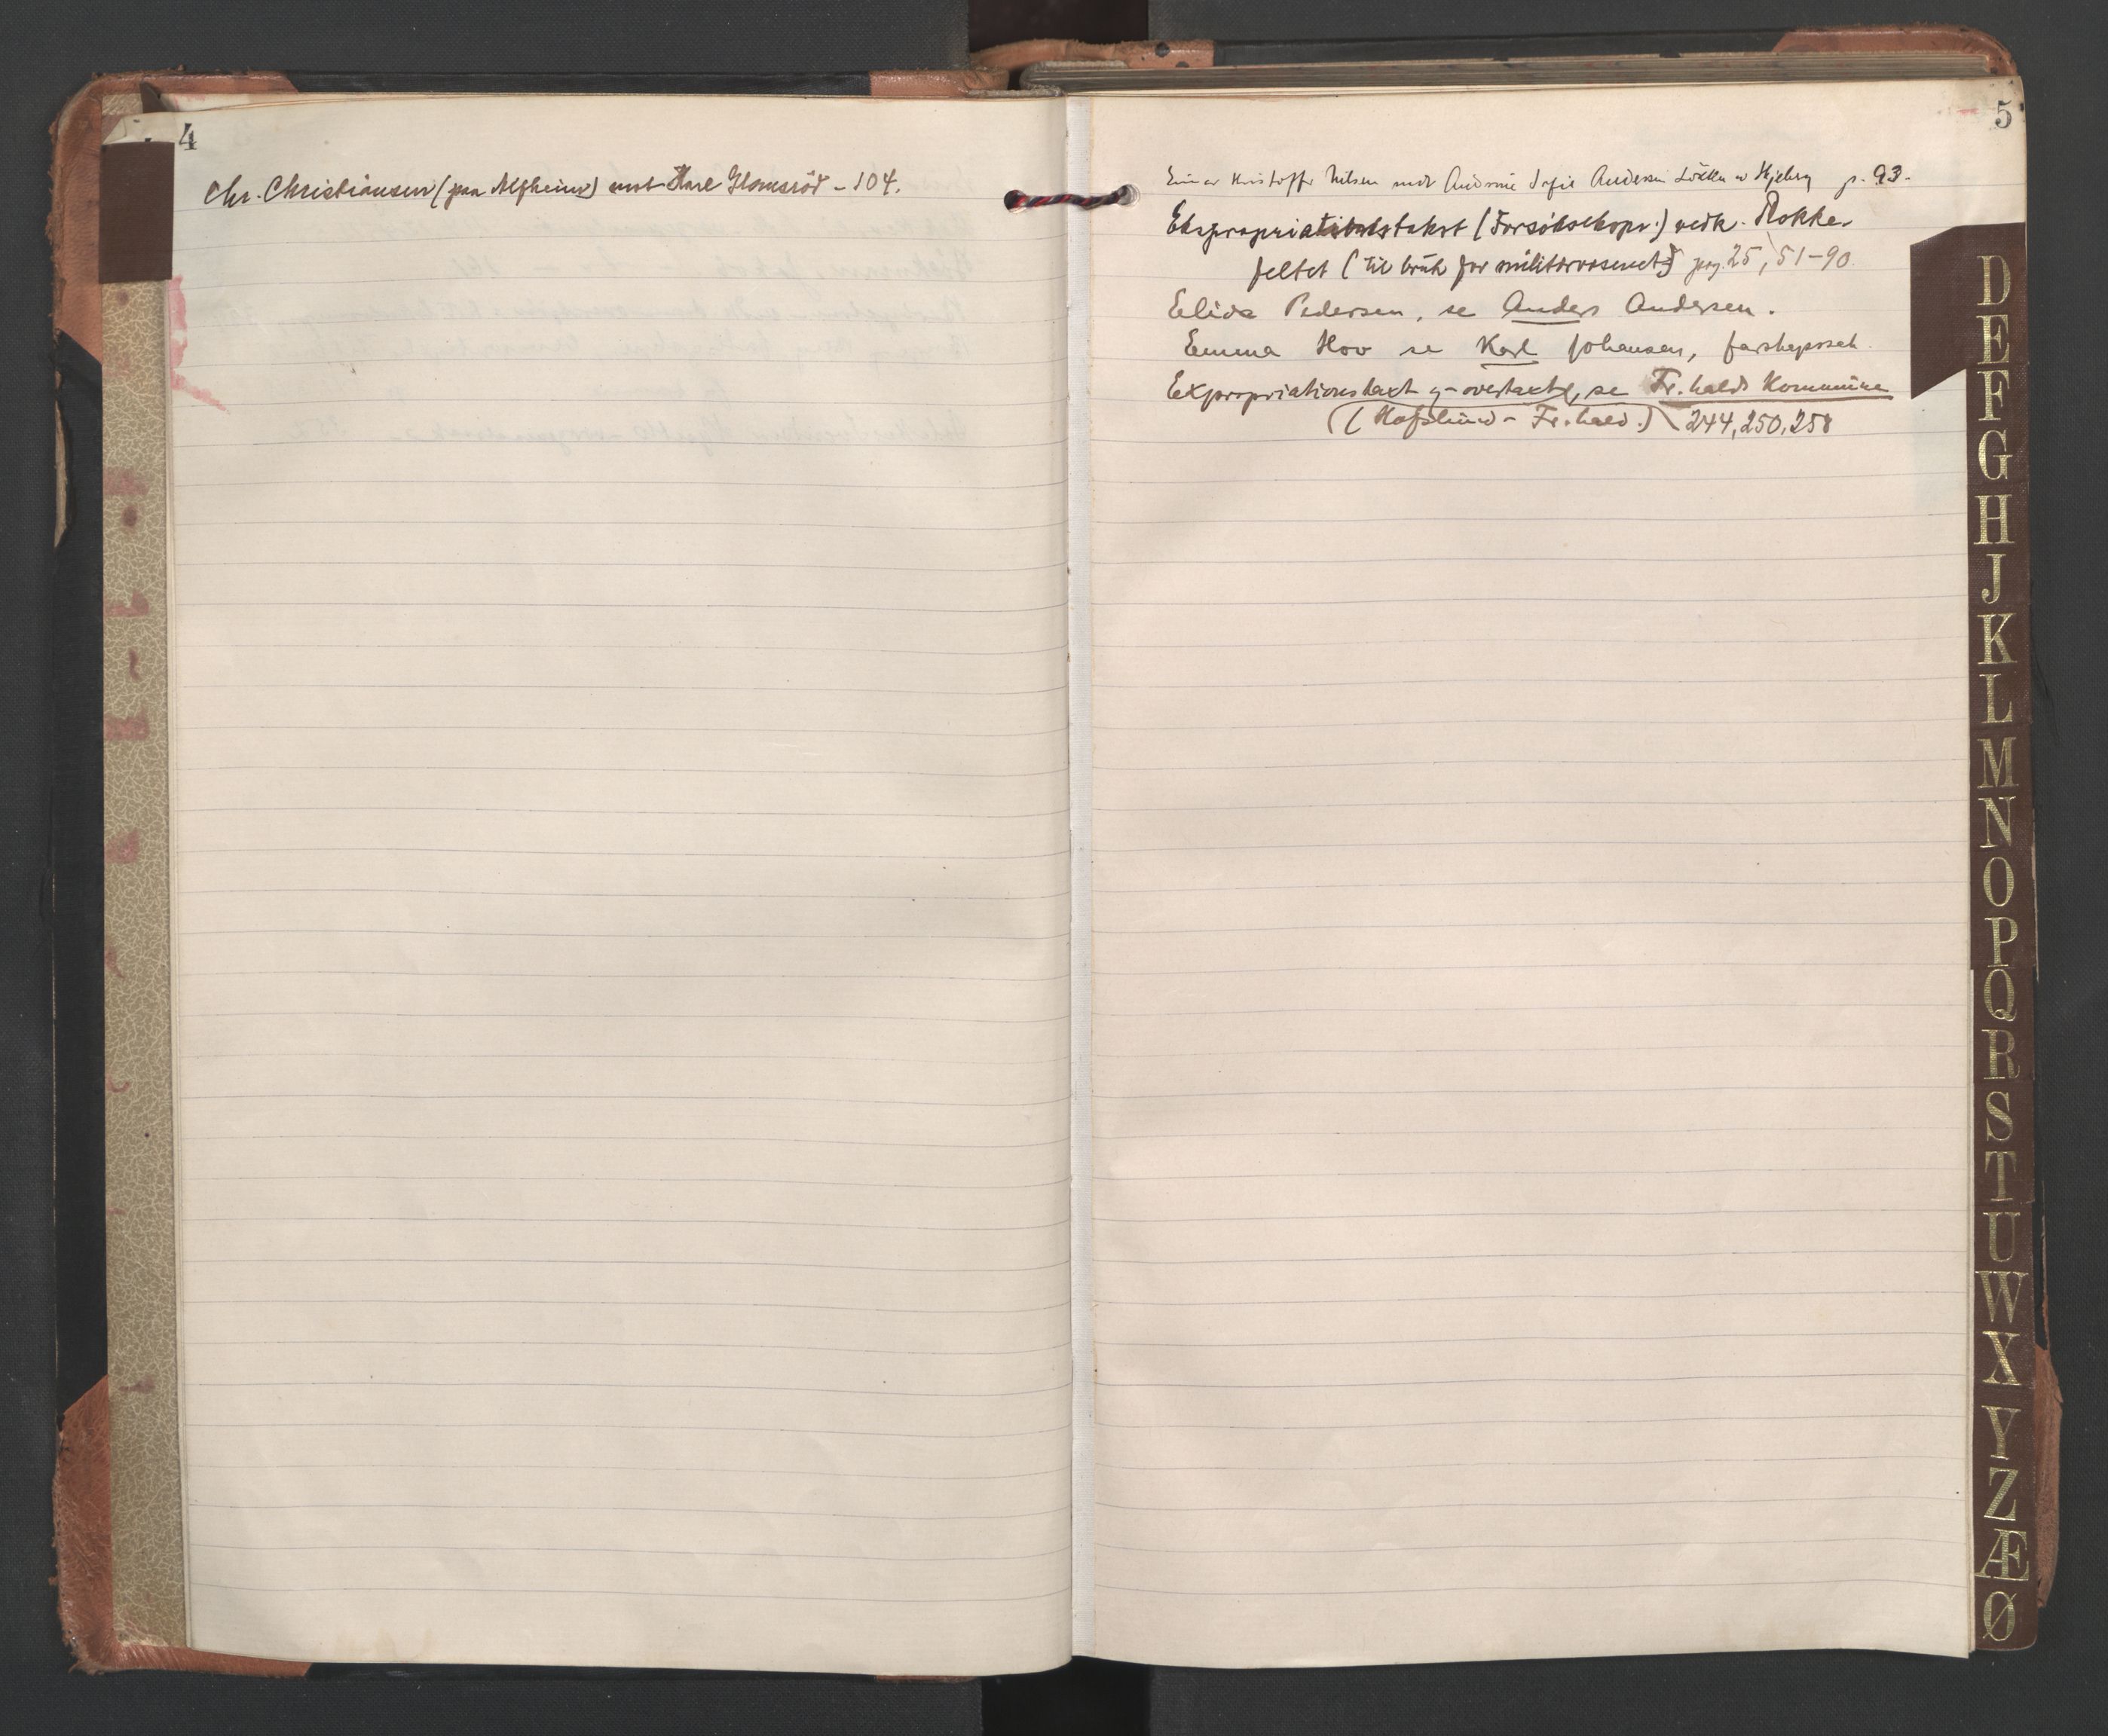 4
Chr. Christiansen (paa Alfheim) mot Karl Glomsröd - 104.
5
Einar Kristoffer Nilsen mot Andrine Sofie Andersen Lökken Kjeberg p. 93.
Ekspropriationstakst (Forsöksekspr.) vedk. Rokke-
feltet (til bruk for militærvesenet) pag. 25, 51-90.
Elida Pedersen, se Anders Andersen.
Emma Hov se Karl Johansen, farskapssak.
Expropriationstaxt og - overtaxt, se Fr.halds Kommune
(Hafslund - Fr.hald.) 244, 250, 258
D
E
F
G
H
J
K
L
M
N
O
P
Q
R
S
T
U
W
X
Y
Z
Æ
Ø